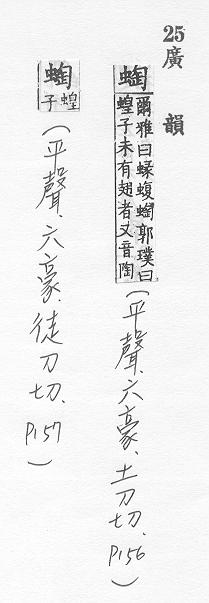 25廣韻
蜪爾雅曰蝝蝮蜪郭璞曰
蝗子未有翅者又音陶
(平聲、六豪、土刀切、P156)
蜪蝗
子
(平聲、六豪、徒刀切、P157)